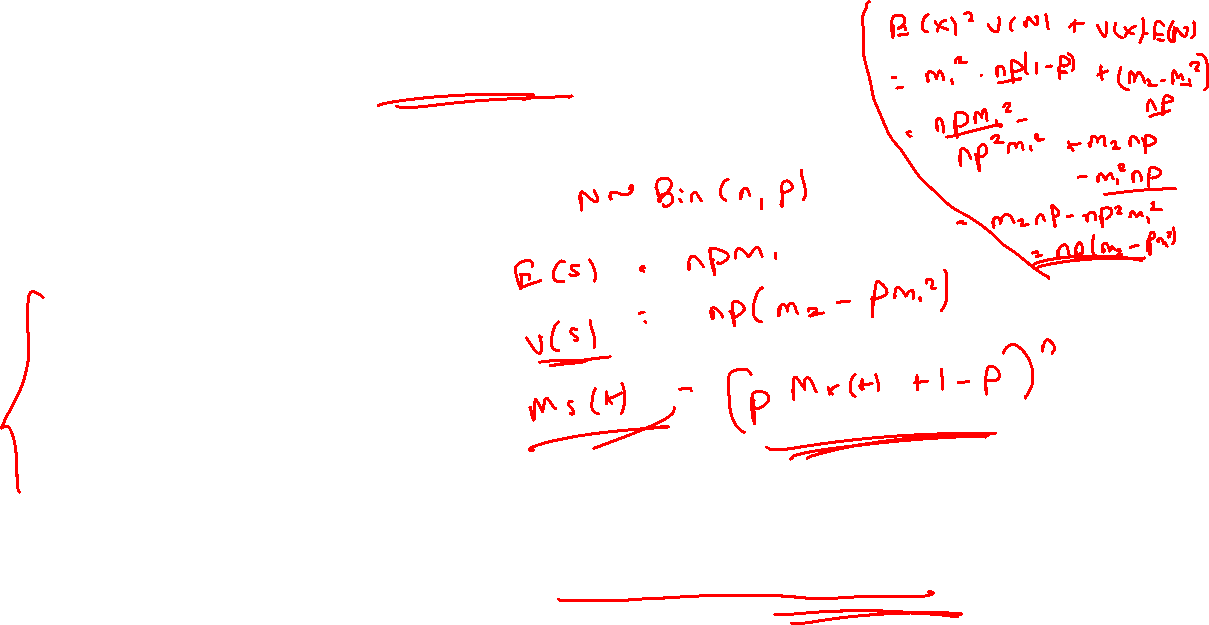 E(X)² V(N) + V(X).E(N)
= m₁² . np(1-p) + (m₂-m₁²)
np
= npm₁² -
np²m₁² + m₂np
- m₁²np
= m₂np - np²m₁²
= np(m₂ - pm₁²)
N ~ Bin(n, p)
E(S) = npm₁
V(S) = np(m₂ - pm₁²)
Ms(t) = (p Mx(t) + 1 - p)ⁿ